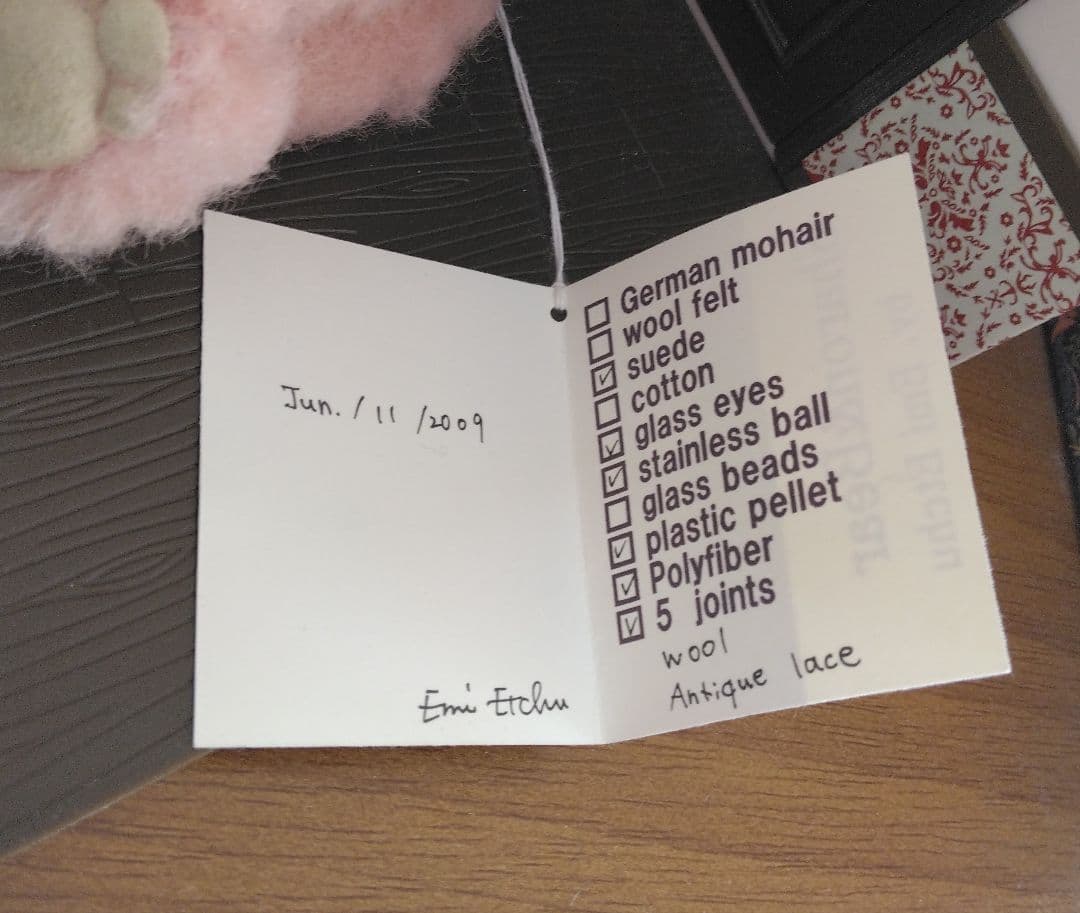 Jun. / 11 / 2009
Emi Etchu
☐ German mohair
☐ wool felt
☑ suede
☐ cotton
☑ glass eyes
☑ stainless ball
☐ glass beads
☑ plastic pellet
☑ Polyfiber
☑ 5 joints
wool
Antique lace